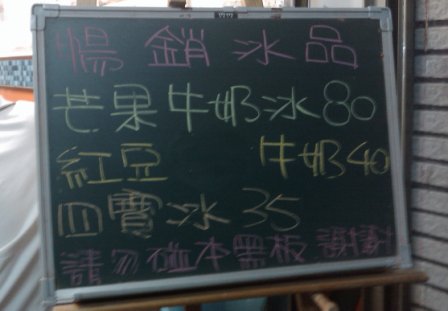 暢銷冰品
芒果牛奶冰80
紅豆 牛奶40
四寶冰35
請勿碰本黑板 謝謝!